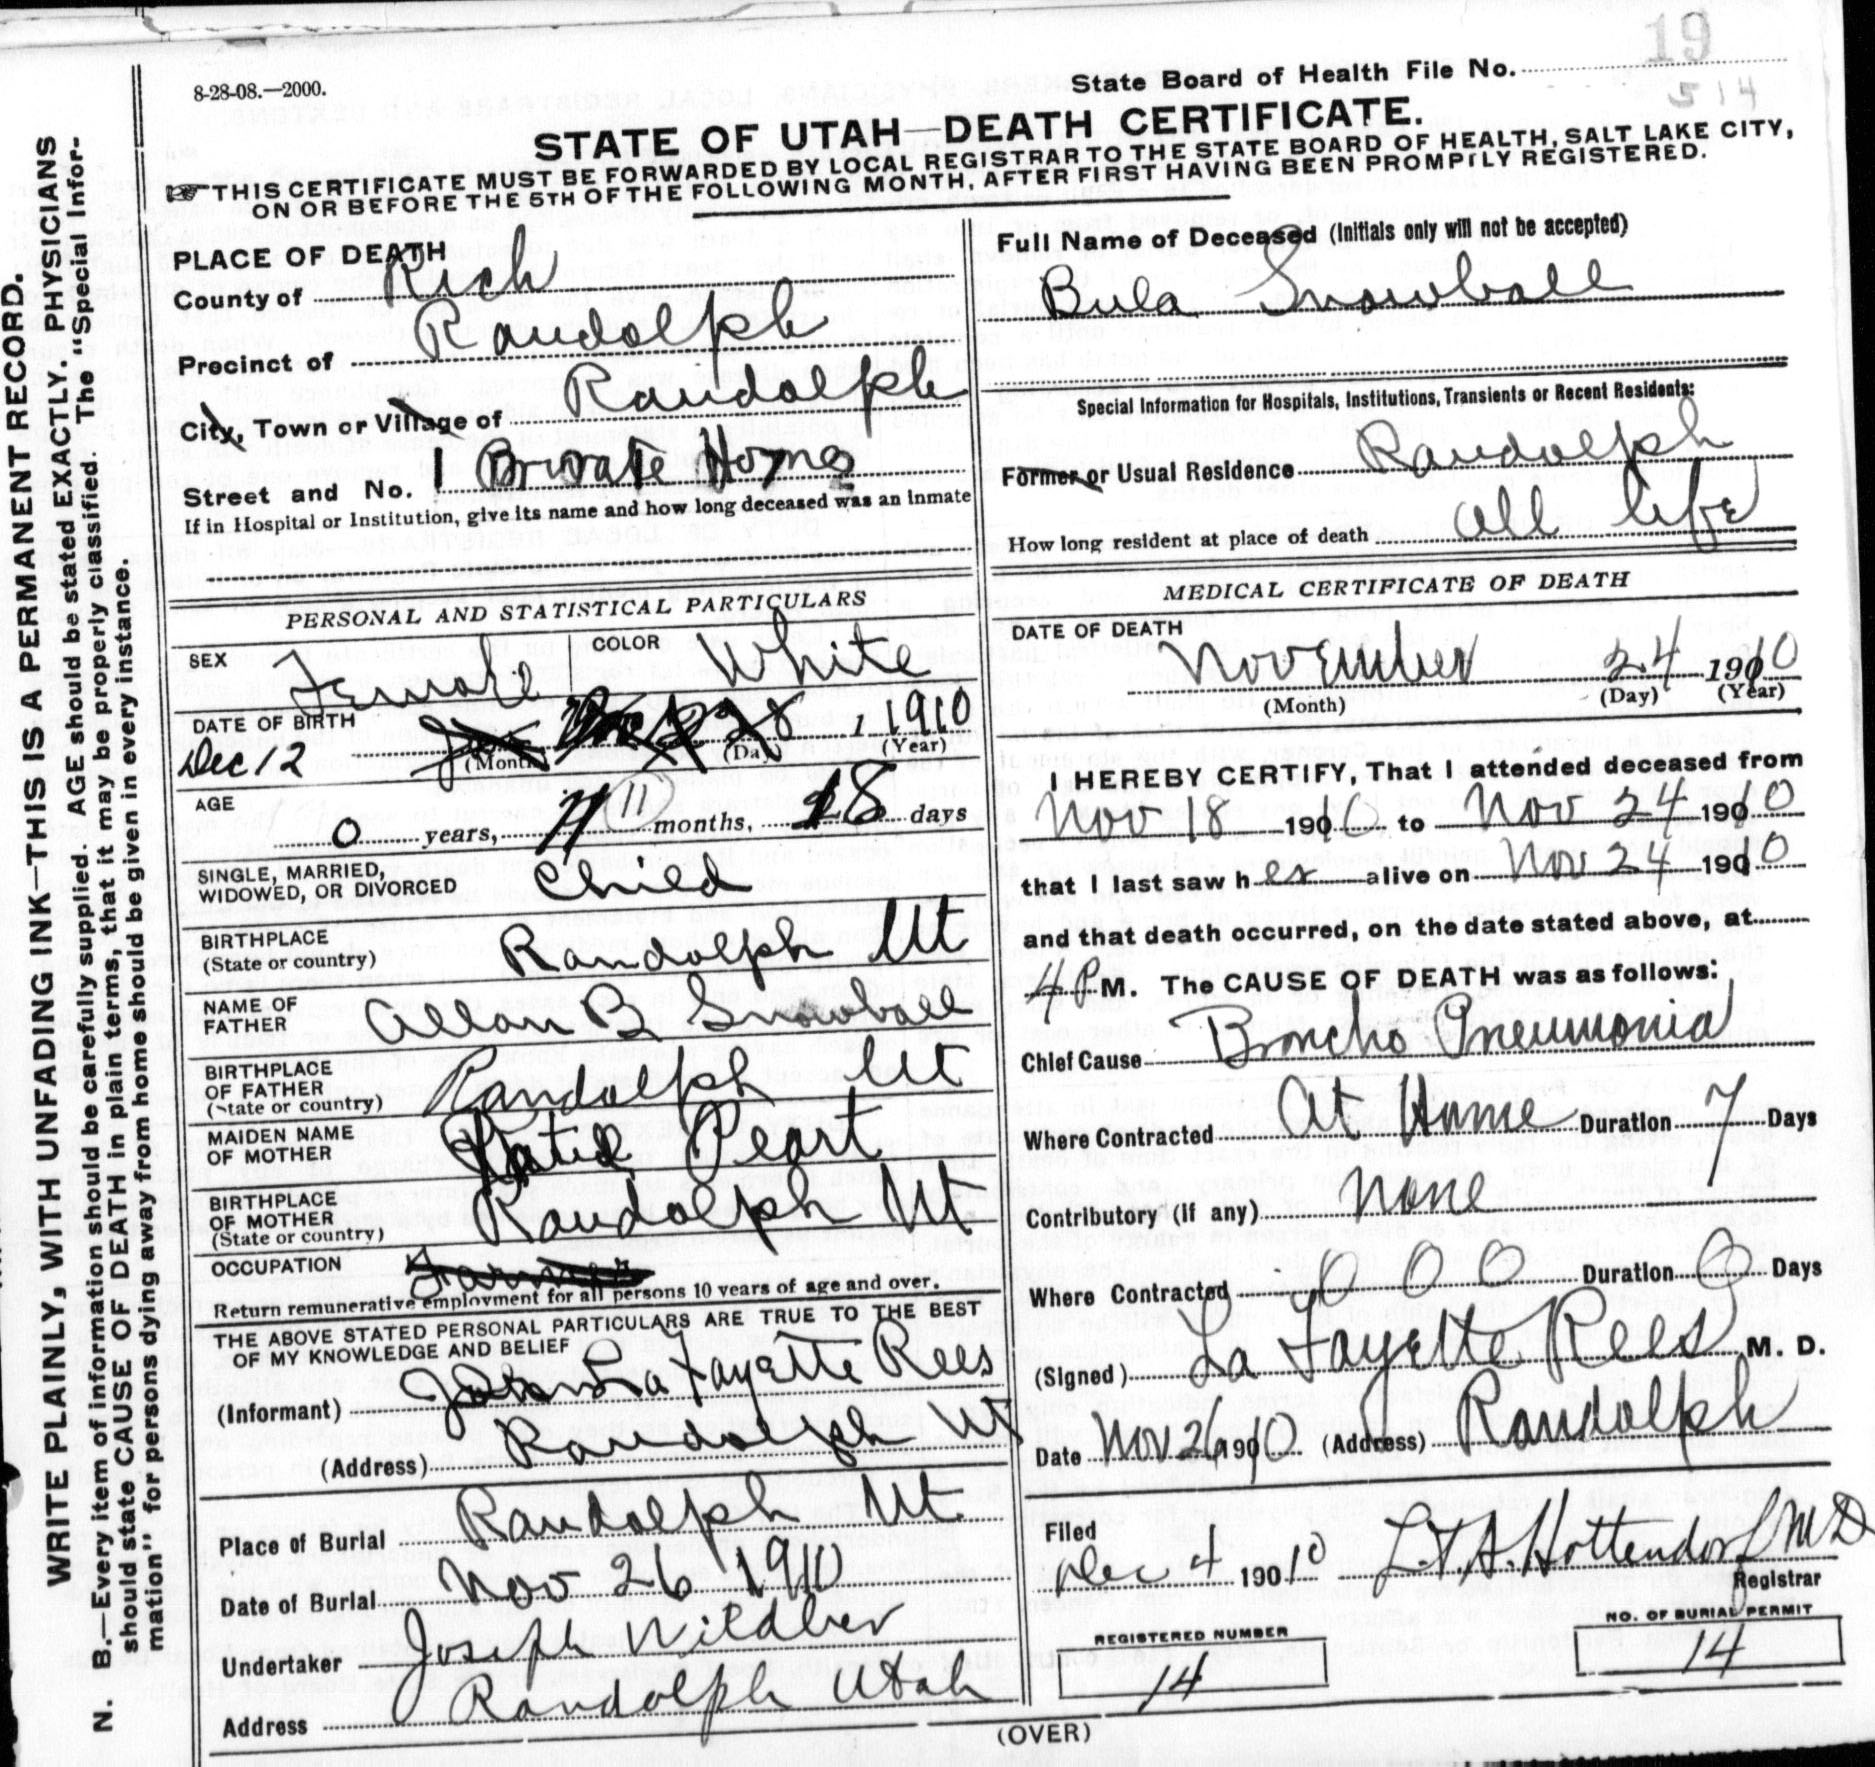 19
514
8-28-08.—2000.
State Board of Health File No.
STATE OF UTAH—DEATH CERTIFICATE.
THIS CERTIFICATE MUST BE FORWARDED BY LOCAL REGISTRAR TO THE STATE BOARD OF HEALTH, SALT LAKE CITY,
ON OR BEFORE THE 5TH OF THE FOLLOWING MONTH, AFTER FIRST HAVING BEEN PROMPTLY REGISTERED.
WRITE PLAINLY, WITH UNFADING INK—THIS IS A PERMANENT RECORD.
N. B.—Every item of information should be carefully supplied. AGE should be stated EXACTLY. PHYSICIANS
should state CAUSE OF DEATH in plain terms, that it may be properly classified. The "Special Infor-
mation" for persons dying away from home should be given in every instance.
PLACE OF DEATH
County of Rich
Precinct of Randolph
City, Town or Village of Randolph
Street and No. 1 Private Home
If in Hospital or Institution, give its name and how long deceased was an Inmate
PERSONAL AND STATISTICAL PARTICULARS
SEX Female COLOR White
DATE OF BIRTH
Dec 12 28 1 1910
(Month) (Day) (Year)
AGE
0 years, 11 months, 18 days
SINGLE, MARRIED,
WIDOWED, OR DIVORCED Child
BIRTHPLACE
(State or country) Randolph Ut
NAME OF
FATHER Allan B Snowball
BIRTHPLACE
OF FATHER
(State or country) Randolph Ut
MAIDEN NAME
OF MOTHER Peart
BIRTHPLACE
OF MOTHER
(State or country) Randolph Ut
OCCUPATION Farmer
Return remunerative employment for all persons 10 years of age and over.
THE ABOVE STATED PERSONAL PARTICULARS ARE TRUE TO THE BEST
OF MY KNOWLEDGE AND BELIEF
(Informant) La Fayette Rees
(Address) Randolph Ut
Place of Burial Randolph Ut
Date of Burial Nov 26 1910
Undertaker Joseph
Address Randolph Utah
Full Name of Deceased (Initials only will not be accepted)
Bula Snowball
Special Information for Hospitals, Institutions, Transients or Recent Residents:
Former or Usual Residence Randolph
How long resident at place of death all life
MEDICAL CERTIFICATE OF DEATH
DATE OF DEATH
November 24 1910
(Month) (Day) (Year)
I HEREBY CERTIFY, That I attended deceased from
Nov 18 1910 to Nov 24 1910
that I last saw her alive on Nov 24 1910
and that death occurred, on the date stated above, at
4 P M. The CAUSE OF DEATH was as follows:
Chief Cause Broncho Pneumonia
Where Contracted At Home Duration 7 Days
Contributory (if any) none
Where Contracted 0 0 0 Duration 0 Days
(Signed) La Fayette Rees M. D.
Date Nov 26 1910 (Address) Randolph
Filed
Dec 4 1910 Hottendorf MD
Registrar
REGISTERED NUMBER
14
NO. OF BURIAL PERMIT
14
(OVER)